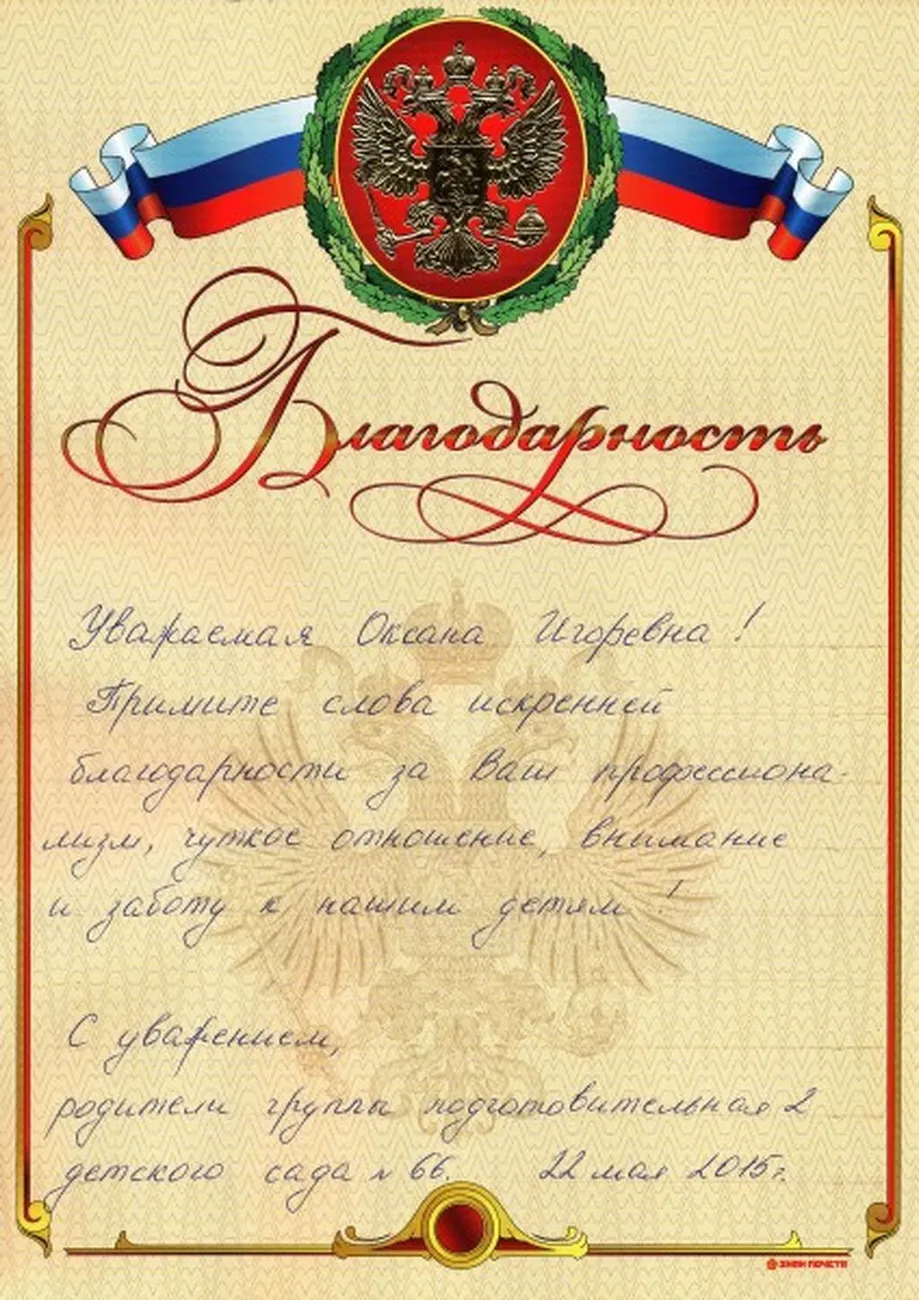 Благодарность
Уважаемая Оксана Игоревна!
Примите слова искренней
благодарности за Ваш профессиона-
лизм, чуткое отношение, внимание
и заботу к нашим детям!
С уважением,
родители группы подготовительная 2
детского сада № 66. 22 мая 2015г.
ЗНАК ПОЧЕТА